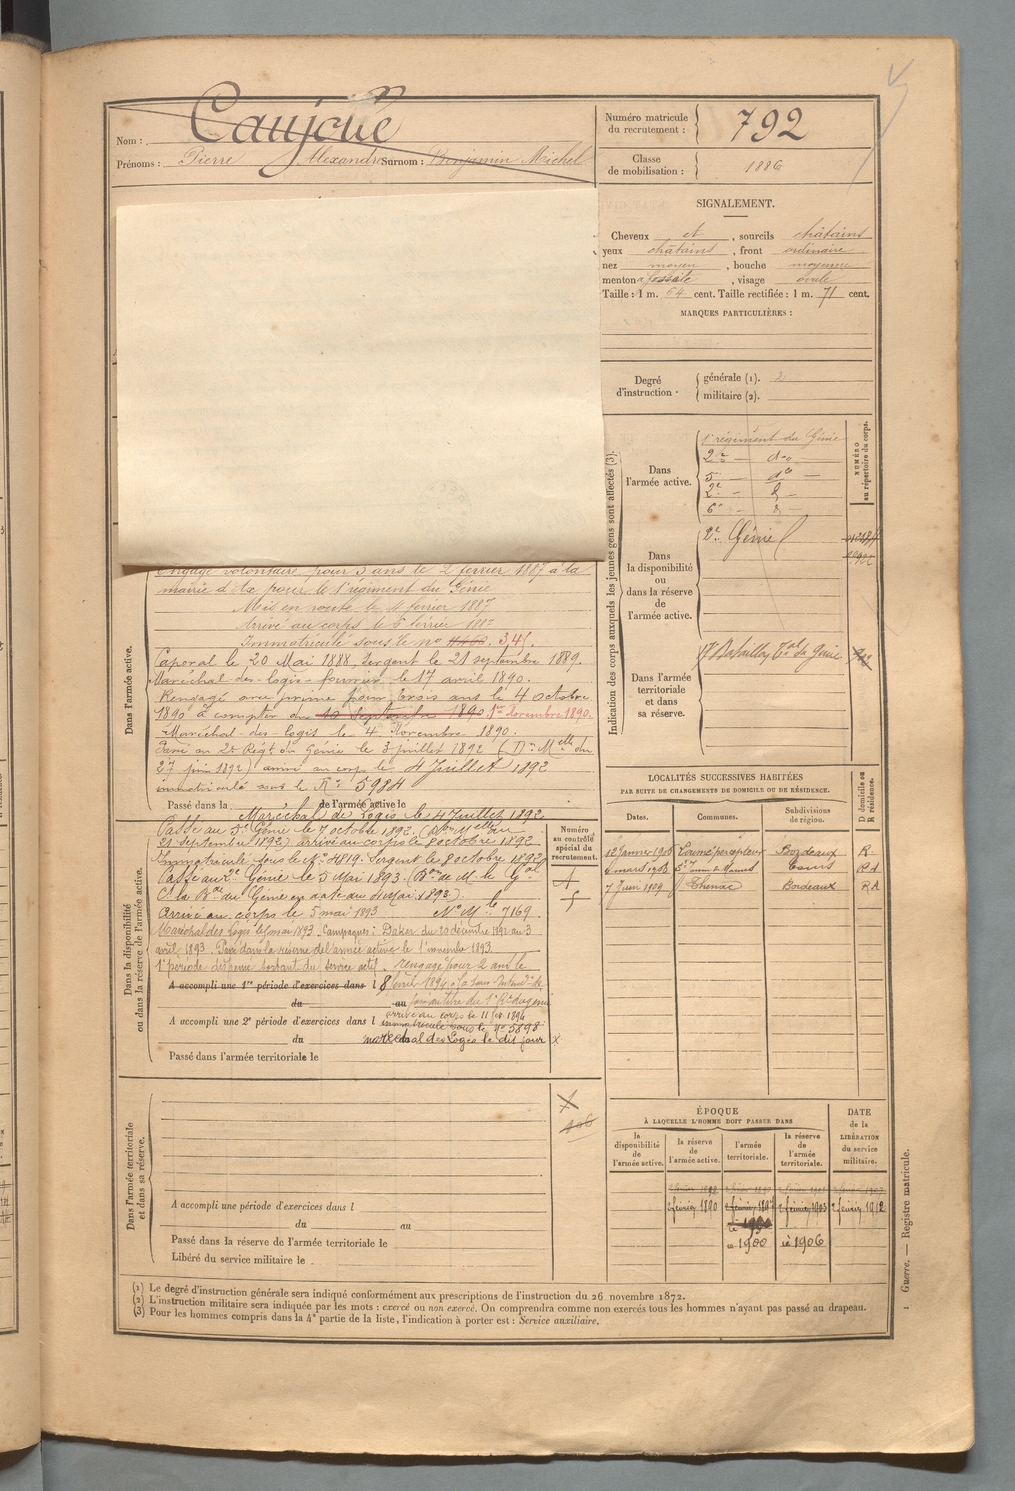 Nom : Caujolle
Prénoms : Pierre Alexandre Surnom : Benjamin Michel
Numéro matricule du recrutement : 792
Classe de mobilisation : 1886
SIGNALEMENT.
Cheveux et , sourcils châtains
yeux châtains , front ordinaire
nez moyen , bouche moyenne
menton à fossette , visage ovale
Taille : 1 m. 64 cent. Taille rectifiée : 1 m. 71 cent.
MARQUES PARTICULIÈRES :
Degré d'instruction
générale (1). 2
militaire (2).
Indication des corps auxquels les jeunes gens sont affectés (3).
NUMÉRO au répertoire du corps.
Dans l'armée active.
1er régiment du Génie
2e — do —
5e — do —
2e — d —
6e — d —
Dans la disponibilité ou dans la réserve de l'armée active.
2e Génie
Dans l'armée territoriale et dans sa réserve.
Bataillon Tal du Génie
Dans l'armée active.
Engagé volontaire pour 5 ans le 2 février 1887 à la
mairie d' pour le 1er régiment du Génie
Mis en route le 4 février 1887
Arrivé au corps le février 1887
Immatriculé sous le no 341.
Caporal le 20 Mai 1888, Sergent le 21 septembre 1889.
Maréchal-des-logis-fourrier le 17 avril 1890.
Rengagé avec prime pour trois ans le 4 octobre
1890 à compter du 10 Septembre 1890 1er Novembre 1890.
Maréchal-des-logis le 4 Novembre 1890.
Passé au 2e Régt du Génie le 3 juillet 1892 (Don Melle du
27 juin 1892) arrivé au corps le 4 Juillet 1892
immatriculé sous le No 5984
Passé dans la de l'armée active le
Maréchal de Logis le 4 Juillet 1892
Dans la disponibilité ou dans la réserve de l'armée active.
Numéro au contrôle spécial du recrutement.
Passé au 5e Génie le 7 octobre 1892. (Don Melle du
21 septembre 1892) arrivé au corps le 8 octobre 1892
Immatriculé sous le No 4819. Sergent le 8 octobre 1892
Passé au 2e Génie le 5 Mai 1893 (Bon de M. le Gal
Ct la Bde du Génie en date du Mai 1893).
Arrivé au corps le 5 mai 1893 No Mle 7169.
Maréchal des Logis le 5 mai 1893. Campagnes : Dakar du 20 décembre 1892 au 3
avril 1893. Passé dans la réserve de l'armée active le 1er novembre 1893.
rengagé pour 2 ans le
A accompli une 1re période d'exercices dans l
8 février 1894 à la Sous-Intendce de
du au
au titre du Rt du génie
arrivé au corps le 11 fév 1894
A accompli une 2e période d'exercices dans l
immatriculé sous le No 5898
du
maréchal des Loges le dit jour
Passé dans l'armée territoriale le
LOCALITÉS SUCCESSIVES HABITÉES
PAR SUITE DE CHANGEMENTS DE DOMICILE OU DE RÉSIDENCE.
Dates. Communes. Subdivisions de région. D domicile ou R résidence.
12 Janvier 1906 Bordeaux R
mars 1908 Tours RA
7 Juin 1909 Thenac Bordeaux RA
ÉPOQUE
À LAQUELLE L'HOMME DOIT PASSER DANS
la disponibilité de l'armée active.
la réserve de l'armée active.
l'armée territoriale.
la réserve de l'armée territoriale.
DATE de la LIBÉRATION du service militaire.
2 février 1890 2 février 1897 2 février 1903 2 février 1912
1900 1906
Dans l'armée territoriale et dans sa réserve.
A accompli une période d'exercices dans l
du au
Passé dans la réserve de l'armée territoriale le
Libéré du service militaire le
(1) Le degré d'instruction générale sera indiqué conformément aux prescriptions de l'instruction du 26 novembre 1872.
(2) L'instruction militaire sera indiquée par les mots : exercé ou non exercé. On comprendra comme non exercés tous les hommes n'ayant pas passé au drapeau.
(3) Pour les hommes compris dans la 4e partie de la liste, l'indication à porter est : Service auxiliaire.
1 Guerre. — Registre matricule.